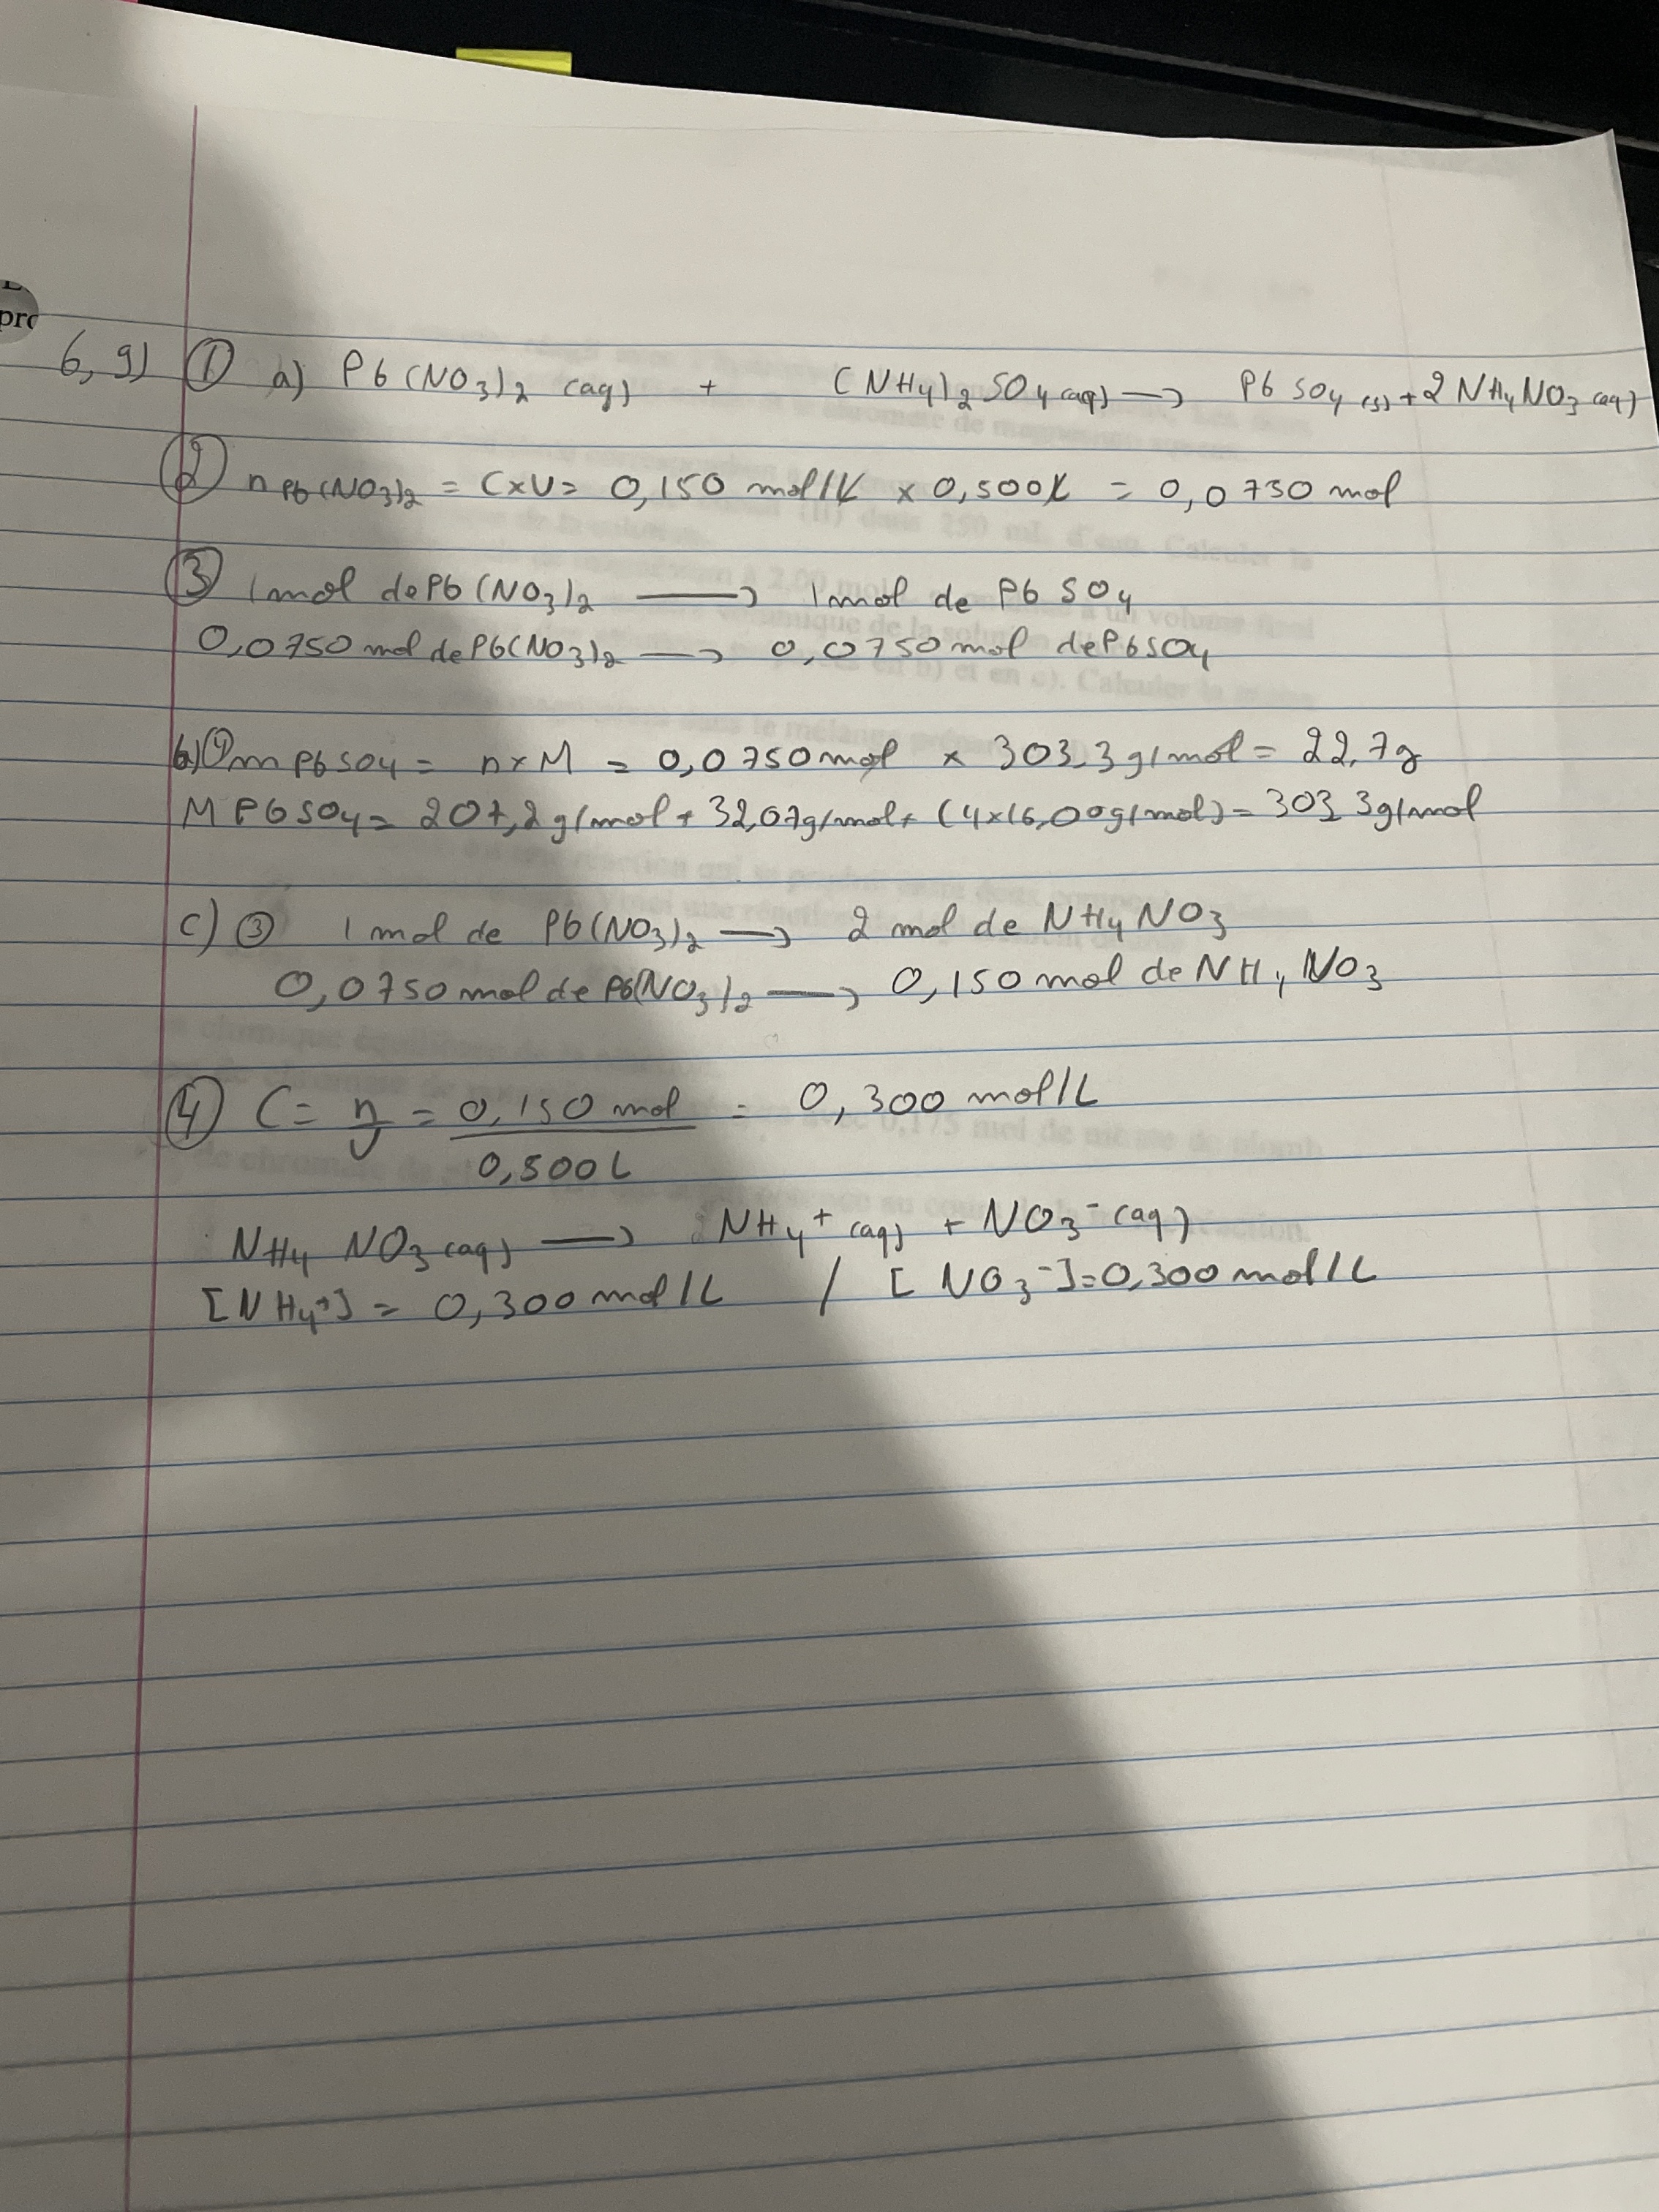 pro
6, 9) ① a) Pb(NO3)2 (aq) + (NH4)2SO4(aq) → PbSO4(s) + 2NH4NO3(aq)
② nPb(NO3)2 = CxV = 0,150 mol/L x 0,500L = 0,0750 mol
③ 1mol de Pb(NO3)2 → 1mol de PbSO4
0,0750 mol de Pb(NO3)2 → 0,0750 mol de PbSO4
b) mPbSO4 = nxM = 0,0750 mol x 303,3g/mol = 22,7g
MPbSO4 = 207,2g/mol + 32,07g/mol + (4x16,00g/mol) = 303,3g/mol
c) ③ 1 mol de Pb(NO3)2 → 2 mol de NH4NO3
0,0750 mol de Pb(NO3)2 → 0,150 mol de NH4NO3
④ C = n/V = 0,150 mol / 0,500L = 0,300 mol/L
NH4NO3(aq) → NH4+(aq) + NO3-(aq)
[NH4+] = 0,300 mol/L / [NO3-] = 0,300 mol/L